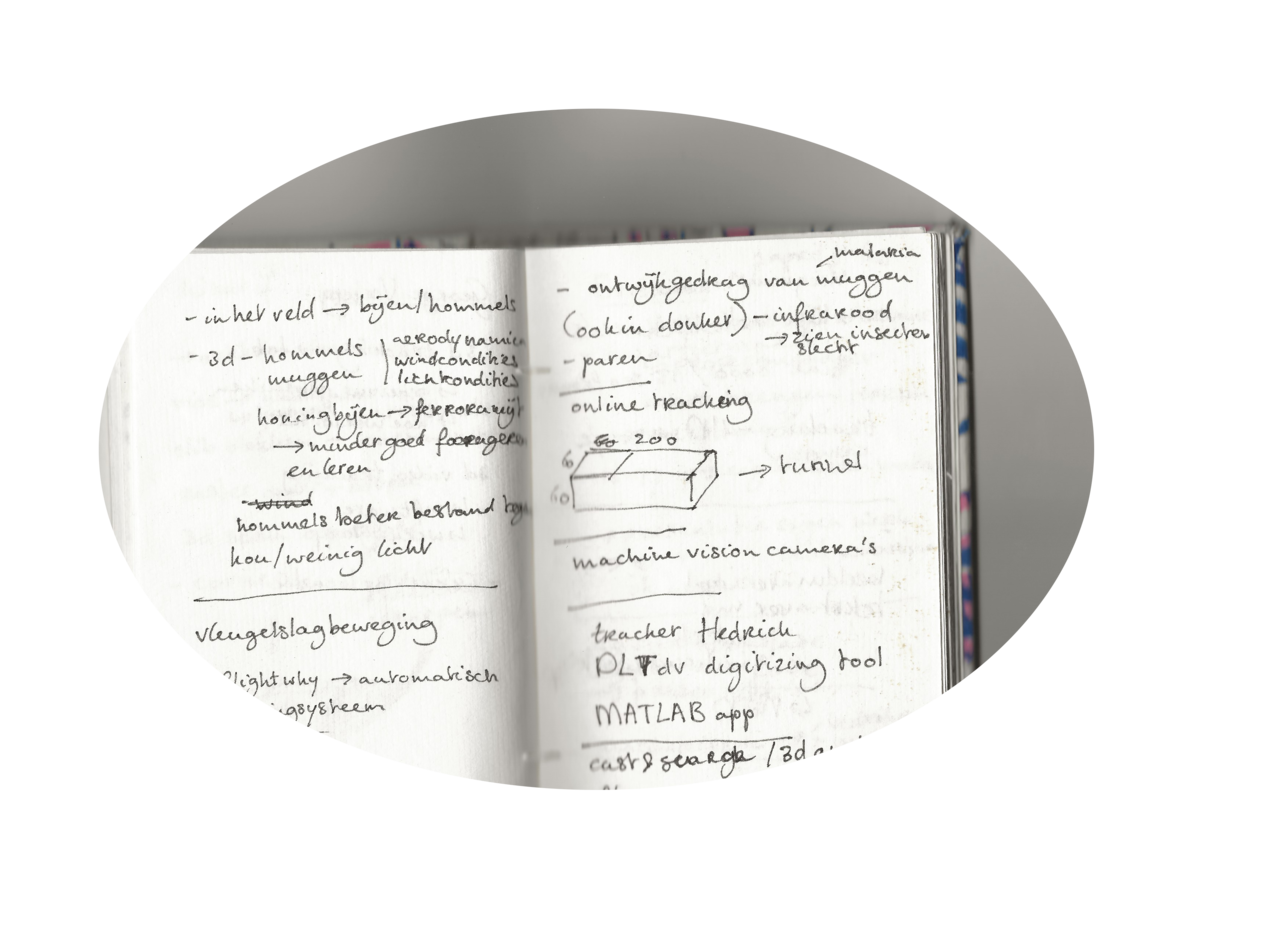 - in het veld → bijen/hommels
- 3d - hommels
muggen
aerodynamica
windcondities
lichtcondities
honingbijen →
→ minder goed
en leren
wind
hommels beter bestand
kou/weinig licht
vleugelslagbeweging
flightwhy → automatisch
malaria
- ontwijkgedrag van muggen
(ook in donker) - infrarood
→ zien insecten
slecht
- paren
online tracking
60 200
60
60
→ tunnel
machine vision camera's
tracker Hedrick
DLTdv digitizing tool
MATLAB app
cast & /3d